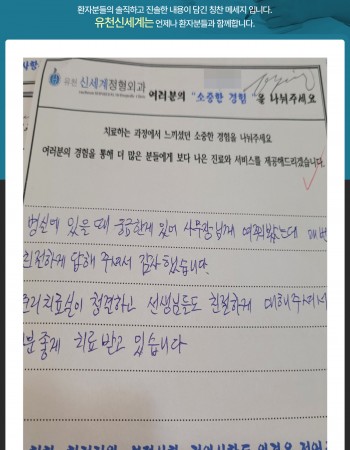 환자분들의 솔직하고 진솔한 내용이 담긴 칭찬 메세지 입니다.
유천신세계는 언제나 환자분들과 함께합니다.
사항
유천 신세계정형외과
여러분의 "소중한 경험"을 나눠주세요
치료하는 과정에서 느끼셨던 소중한 경험을 나눠주세요
여러분의 경험을 통해 더 많은 분들에게 보다 나은 진료와 서비스를 제공해드리겠습니다.
병실에 있을 때 궁금한게 있어 사무장님게 여쭤봤는데 매번
친절하게 답해 주셔서 감사했습니다.
물리치료실이 청결하고 선생님들도 친절하게 대해주셔서
기분좋게 치료 받고 있습니다